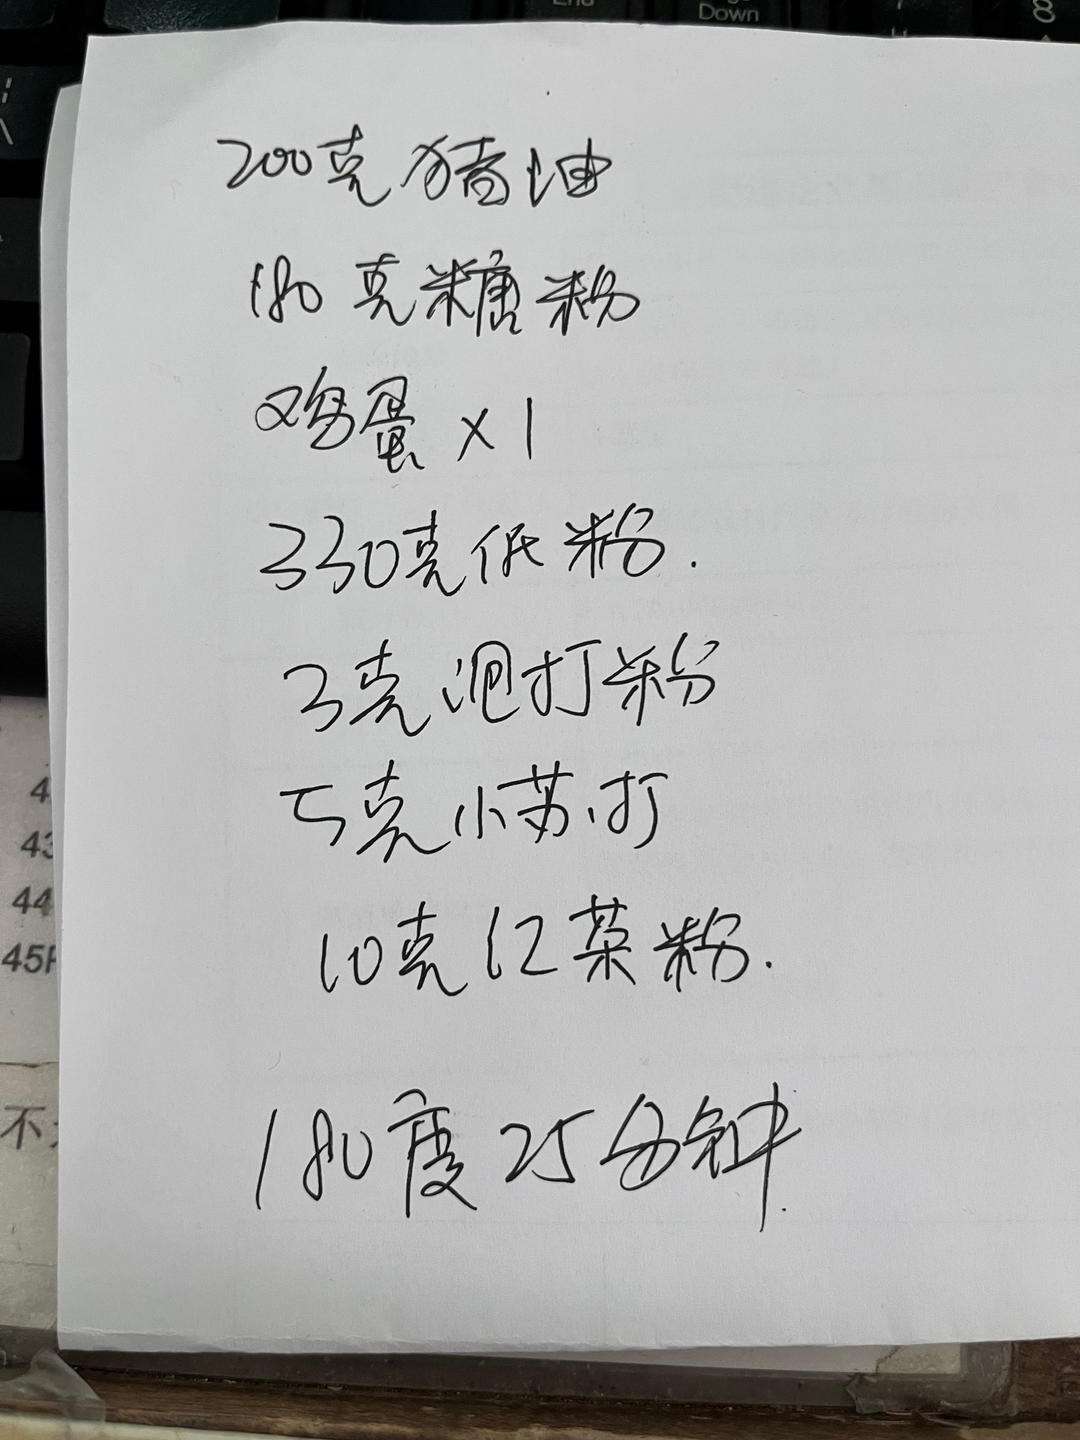 End
Down
200克猪油
180克糖粉
鸡蛋x1
330克低粉.
3克泡打粉
5克小苏打
10克红菜粉.
180度25分钟.
43
44
45F
不